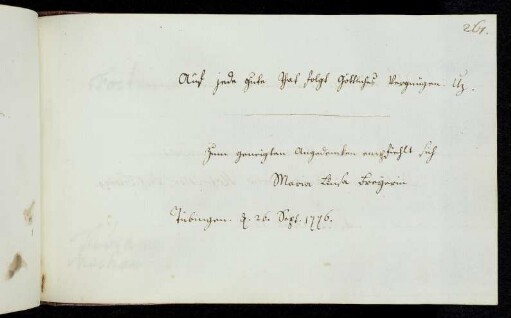 261.
Auf jede gute That folgt Göttliches Vergnügen. Uz.
Zum geneigten Angedenken empfiehlt sich
Maria Luisa Breyerin
Tübingen. d. 26. Sept. 1776.